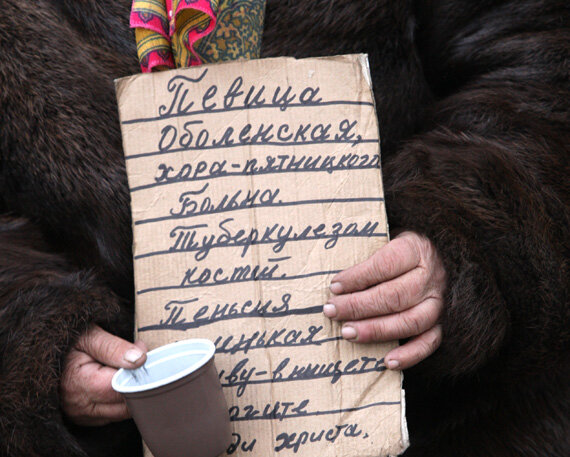 Певица
Оболенская,
хора-пятницкого
Больна.
Туберкулезом
костей.
Пеньсия
нькая
иву-в нищете
огите.
ди христа.